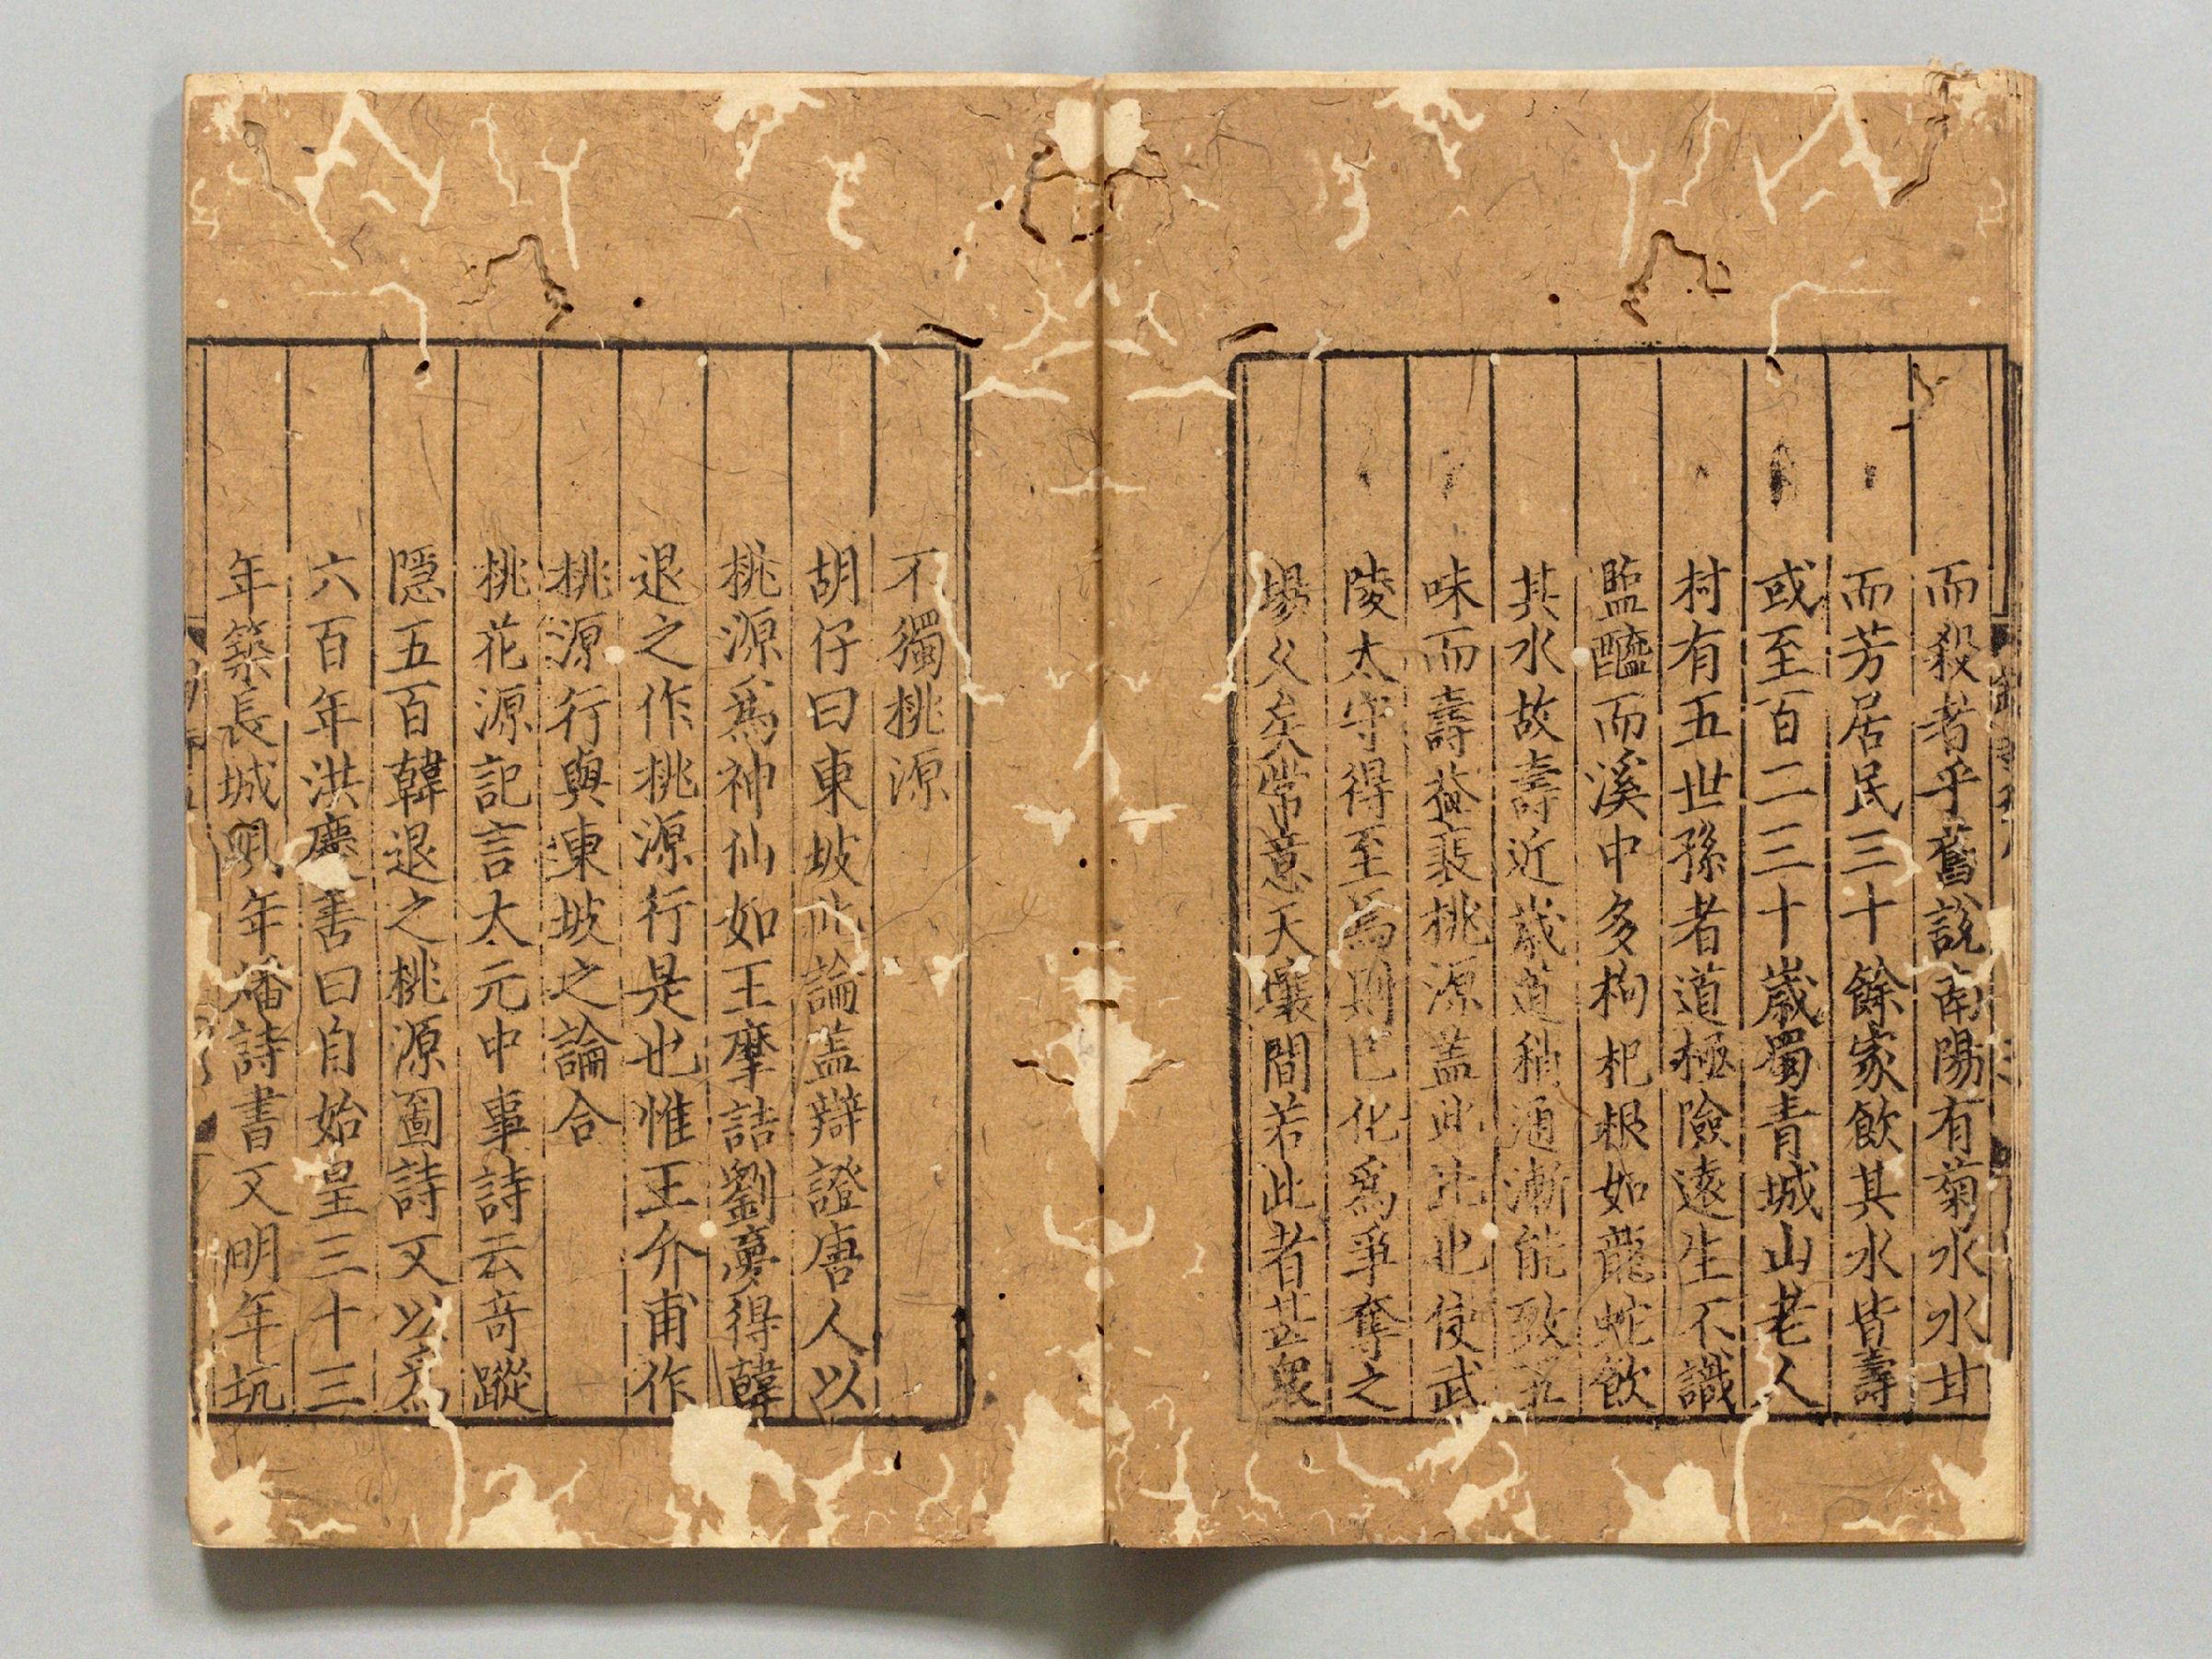 而殺者乎舊說南陽有菊水水甘
而芳居民三十餘家飲其水皆壽
或至百二三十歲蜀青城山老人
村有五世孫者道極險遠生不識
監醯而溪中多枸杞根如龍蛇飲
其水故壽近歲道稍通漸能致五
味而壽益衰桃源蓋此比也使武
陵太守得至焉則已化為爭奪之
場久矣常意天壤間若此者甚衆
不獨桃源
胡仔曰東坡此論盖辯證唐人以
桃源為神仙如王摩詰劉夢得韓
退之作桃源行是也惟王介甫作
桃源行與東坡之論合
桃花源記言太元中事詩云奇蹤
隱五百韓退之桃源圖詩又以為
六百年洪慶善曰自始皇三十三
年築長城明年燔詩書又明年坑